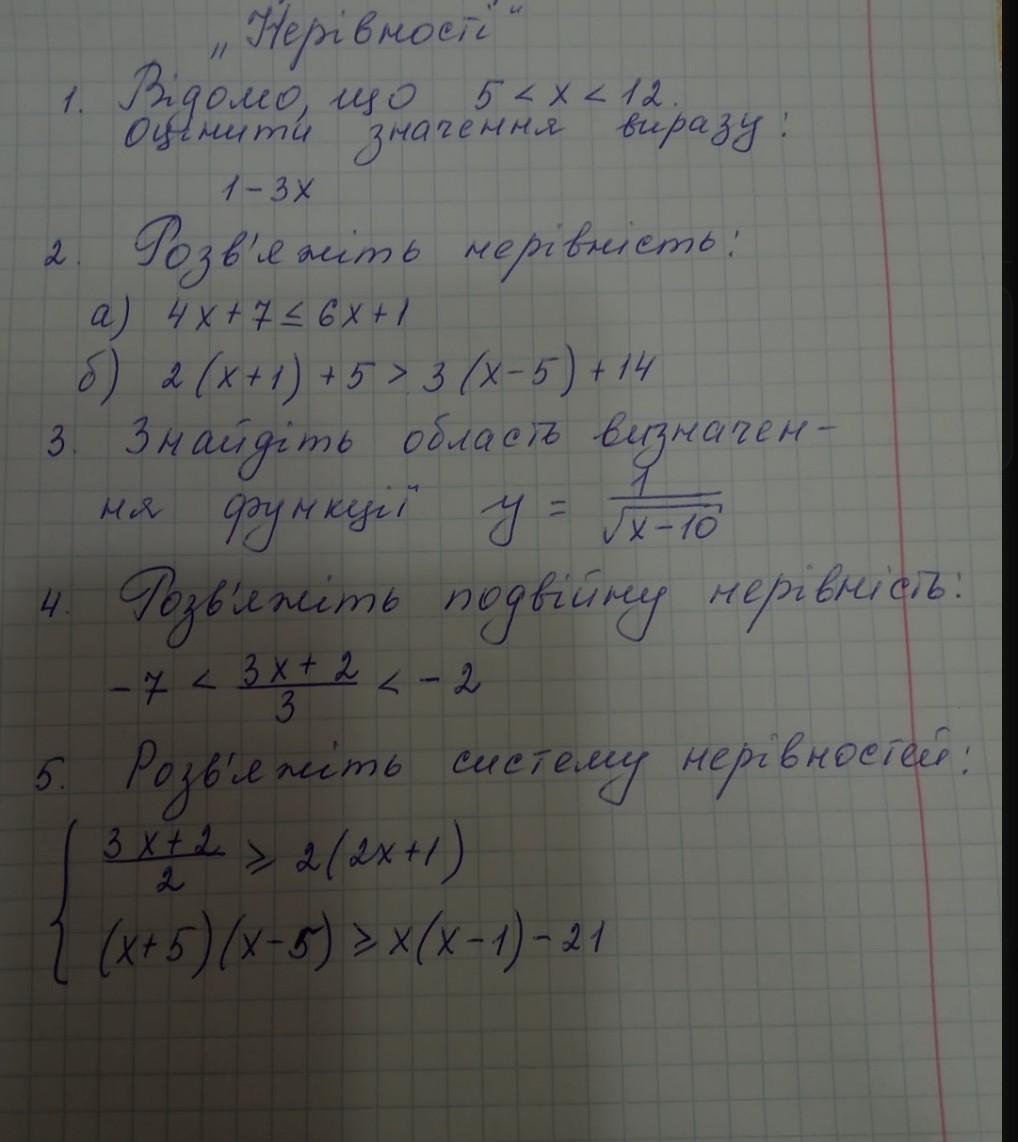 „Нерівності"
1. Відомо, що 5 < x < 12.
оцінити значення виразу:
1 - 3x
2. Розв'яжіть нерівність:
а) 4x + 7 ≤ 6x + 1
б) 2(x+1) + 5 > 3(x-5) + 14
3. Знайдіть область визначен-
ня функції y = 1/√(x-10)
4. Розв'яжіть подвійну нерівність:
-7 < (3x+2)/3 < -2
5. Розв'яжіть систему нерівностей:
{ (3x+2)/2 ≥ 2(2x+1)
(x+5)(x-5) ≥ x(x-1) - 21